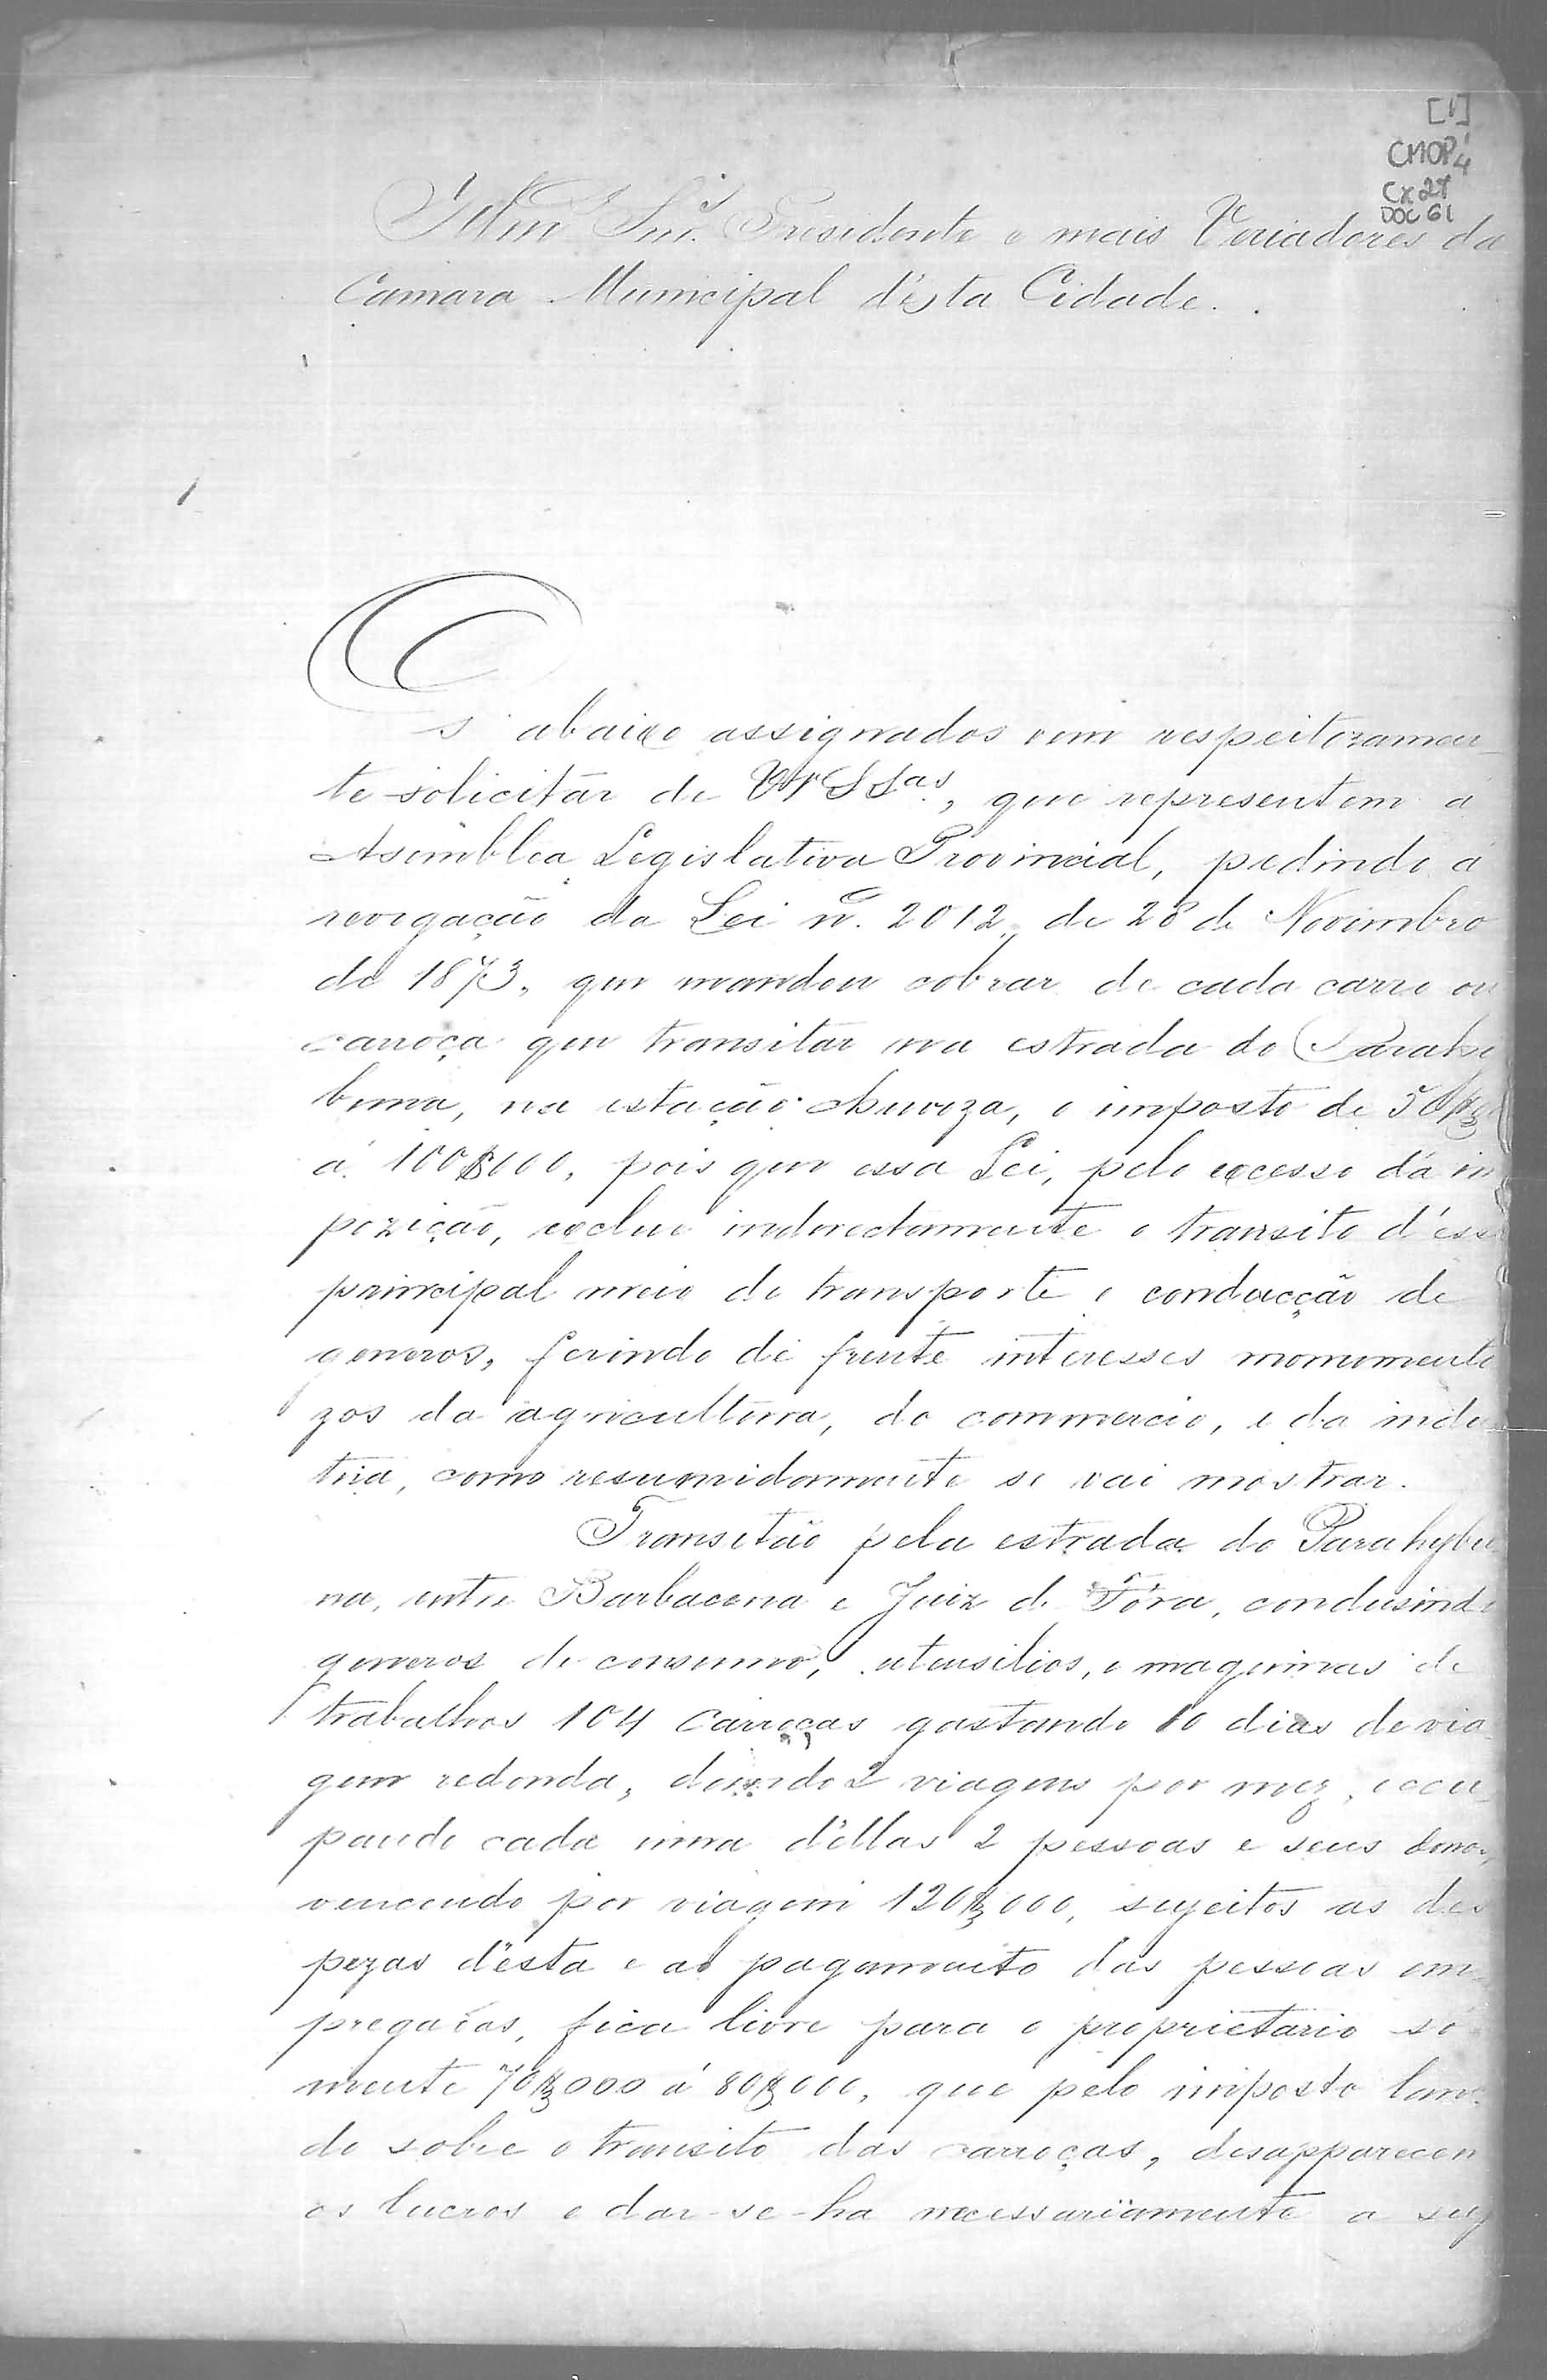 [1]
CMOP
Cx 27
DOC 61
Illmo Snr. Presidente e mais Veriadores da
Camara Municipal d'esta Cidade.
Os abaixo assignados vem respeitozamen-
te solicitar de VV SSas, que representem a
Asemblea Legislativa Provincial, pedindo a
revogação da Lei nº. 2012, de 28 de Novembro
de 1873, que mandou cobrar de cada carro ou
carroça que transitar na estrada do Parahi
buna, na estação chuvoza, o imposto de 50$
á 100$000, pois que essa Lei, pelo excesso da im
pozição, exclue inderectamente o transito d'ess
principal meio de transporte e conducção de
generos, ferindo de frente interesses momumento
zos da agricultura, do commercio, e da indu
tria, como resumidamente se vai mostrar.
Transitão pela estrada do Parahybu
na, entre Barbacena e Juiz de Fóra, condusindo
generos de consumo, utensilios, e maquinas de
trabalhos 104 Carroças gastando 10 dias de via
gem redonda, dando 2 viagens por mez, occu
pando cada uma d'ellas 2 pessoas e seus donos,
vencendo por viagem 120$000, sugeitos as des
pezas d'esta e ao pagamento das pessoas em
pregadas, fica livre para o proprietario só
mente 70$000 á 80$000, que pelo imposto lan
do sobre o transito das carroças, desapparecem
os lucros e dar-se-ha necessariamente a sup